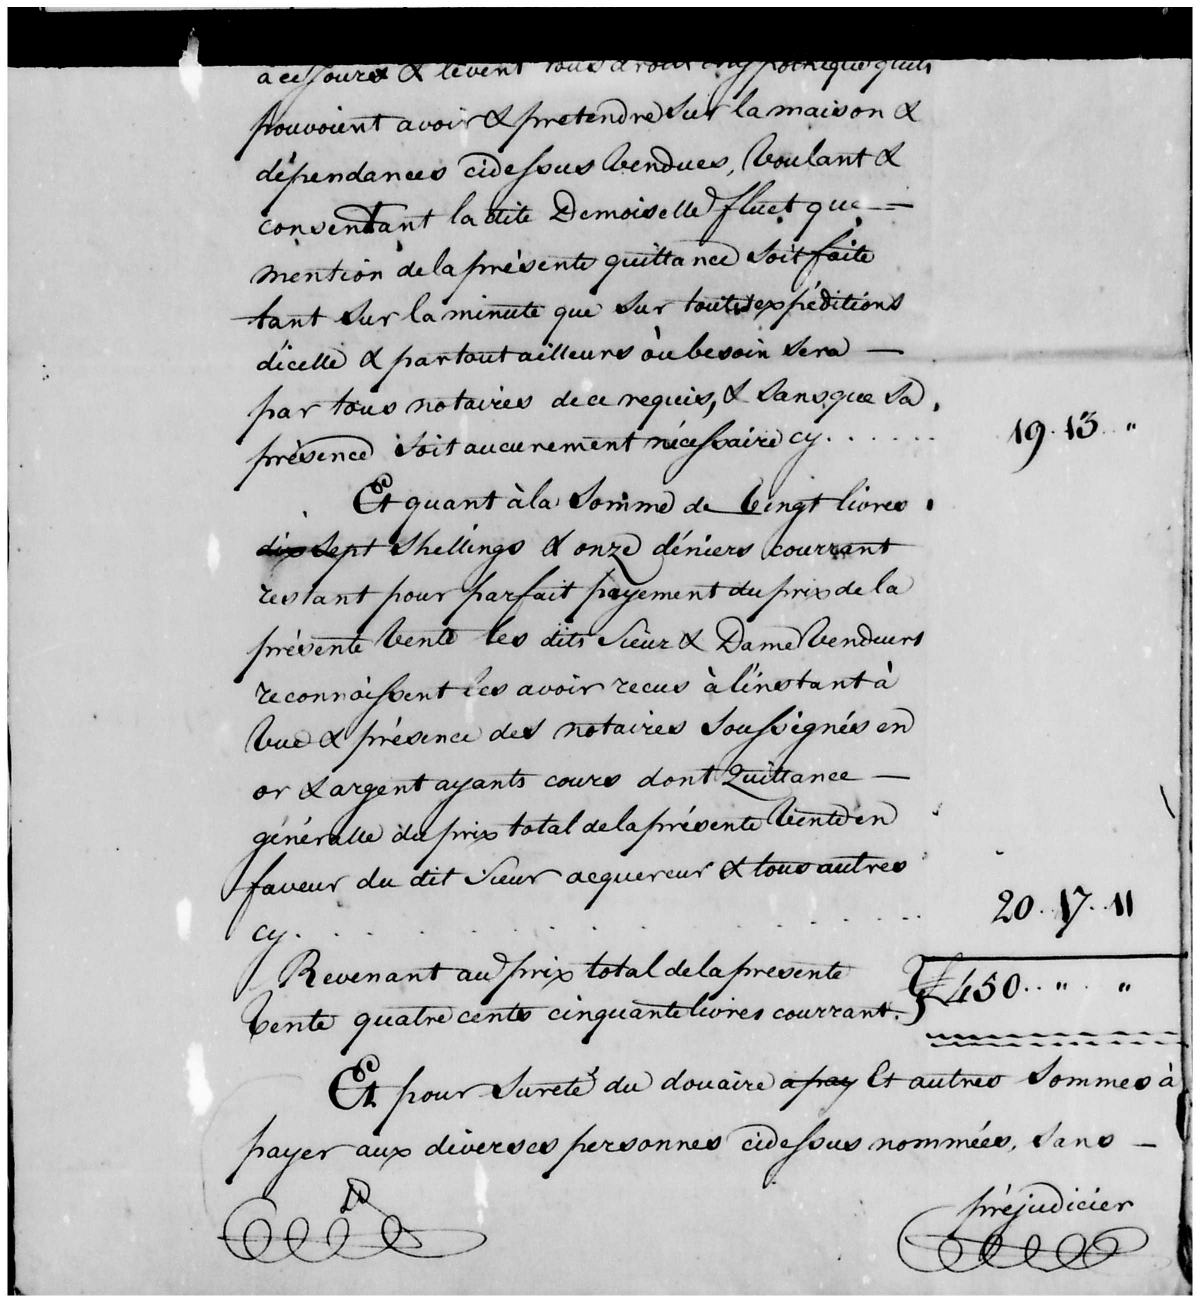 acessoures & levent tous droits hypothèque qu'ils
pouvoient avoir & pretendre sur la maison &
dépendances cidessus Vendues, Voulant &
consentant la dite Demoiselle fluet que —
mention de la présente quittance soit faite
tant sur la minute que sur toutes expéditions
d'icelle & partout ailleurs òu besoin sera —
par tous notaires de ce requis, & sans que sa
présence soit aucunement nécessaire cy . . . . . . 19 . 13 . "
Et quant à la somme de Vingt livres
dix sept Shellings & onze déniers courrant
restant pour parfait payement du prix de la
présente Vente les dits Sieur & Dame Vendeurs
reconnoissent les avoir recus à l'instant à
Vue & présence des notaires soussignés en
or & argent ayants cours dont Quittance —
généralle du prix total de la présente Vente en
faveur du dit Sieur acquereur & tous autres
cy . . . . . . . . . . . . 20 . 17 . 11
Revenant au prix total de la presente
Vente quatre cents cinquante livres courrant. } £450 . . " . "
Et pour Sureté du douaire a pay Et autres Sommes à
payer aux diverses personnes cidessus nommées, sans —
préjudicier